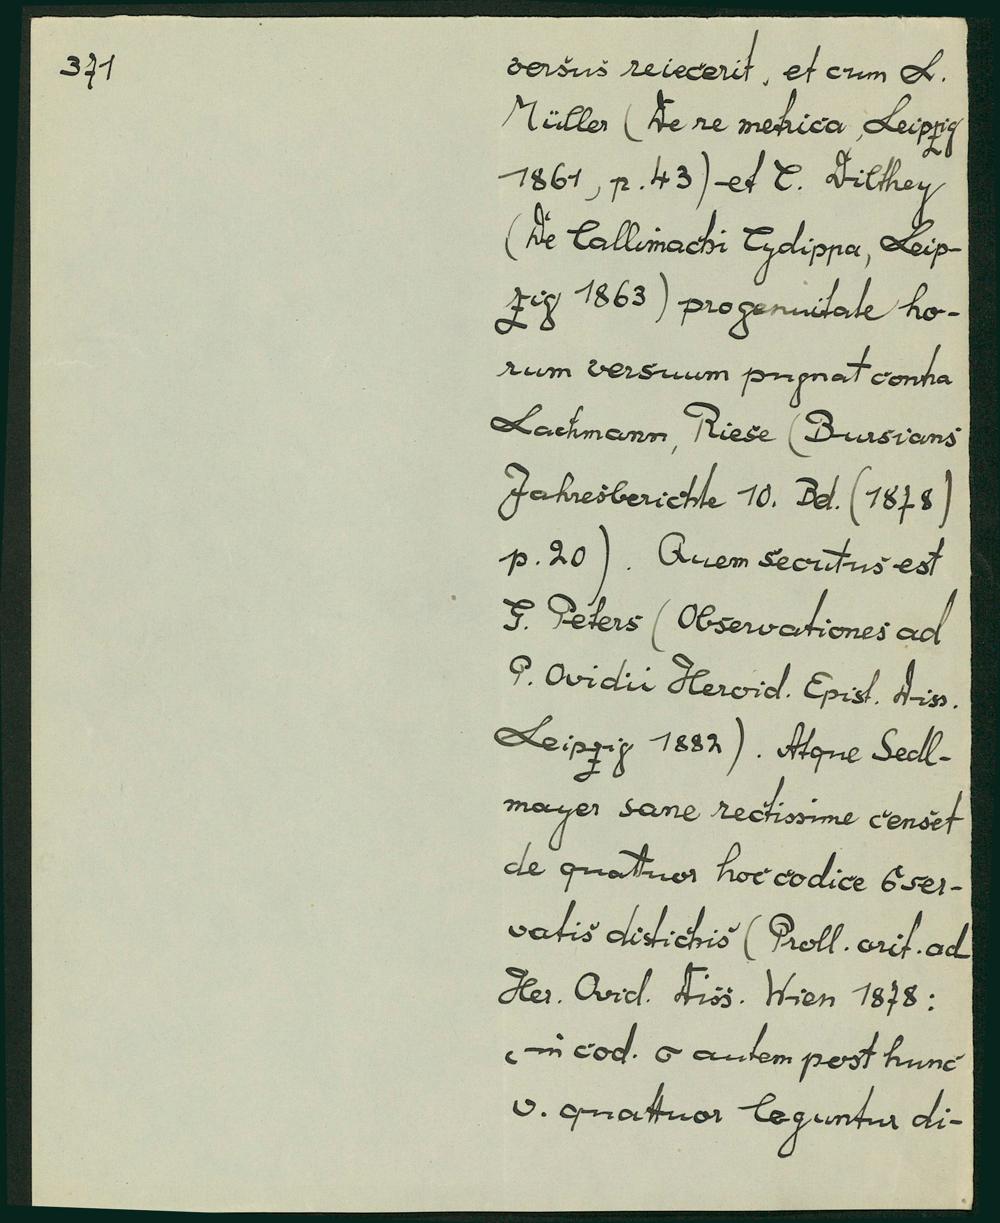 371
versus reiecerit, et cum L.
Müller (De re metrica, Leipzig
1861, p. 43) et C. Dilthey
(De Callimachi Cydippa, Leip-
zig 1863) pro genuitate ho-
rum versuum pugnat contra
Lachmann, Riese (Bursians
Jahresberichte 10. Bd. (1878)
p. 20). Quem secutus est
G. Peters (Observationes ad
P. Ovidii Heroid. Epist. Diss.
Leipzig 1882). Atque Sedl-
mayer sane rectissime censet
de quattuor hoc codice 6 ser-
vatis distichis (Proll. crit. ad
Her. Ovid. Diss. Wien 1878:
‚in cod. σ autem post hunc
v. quattuor leguntur di-